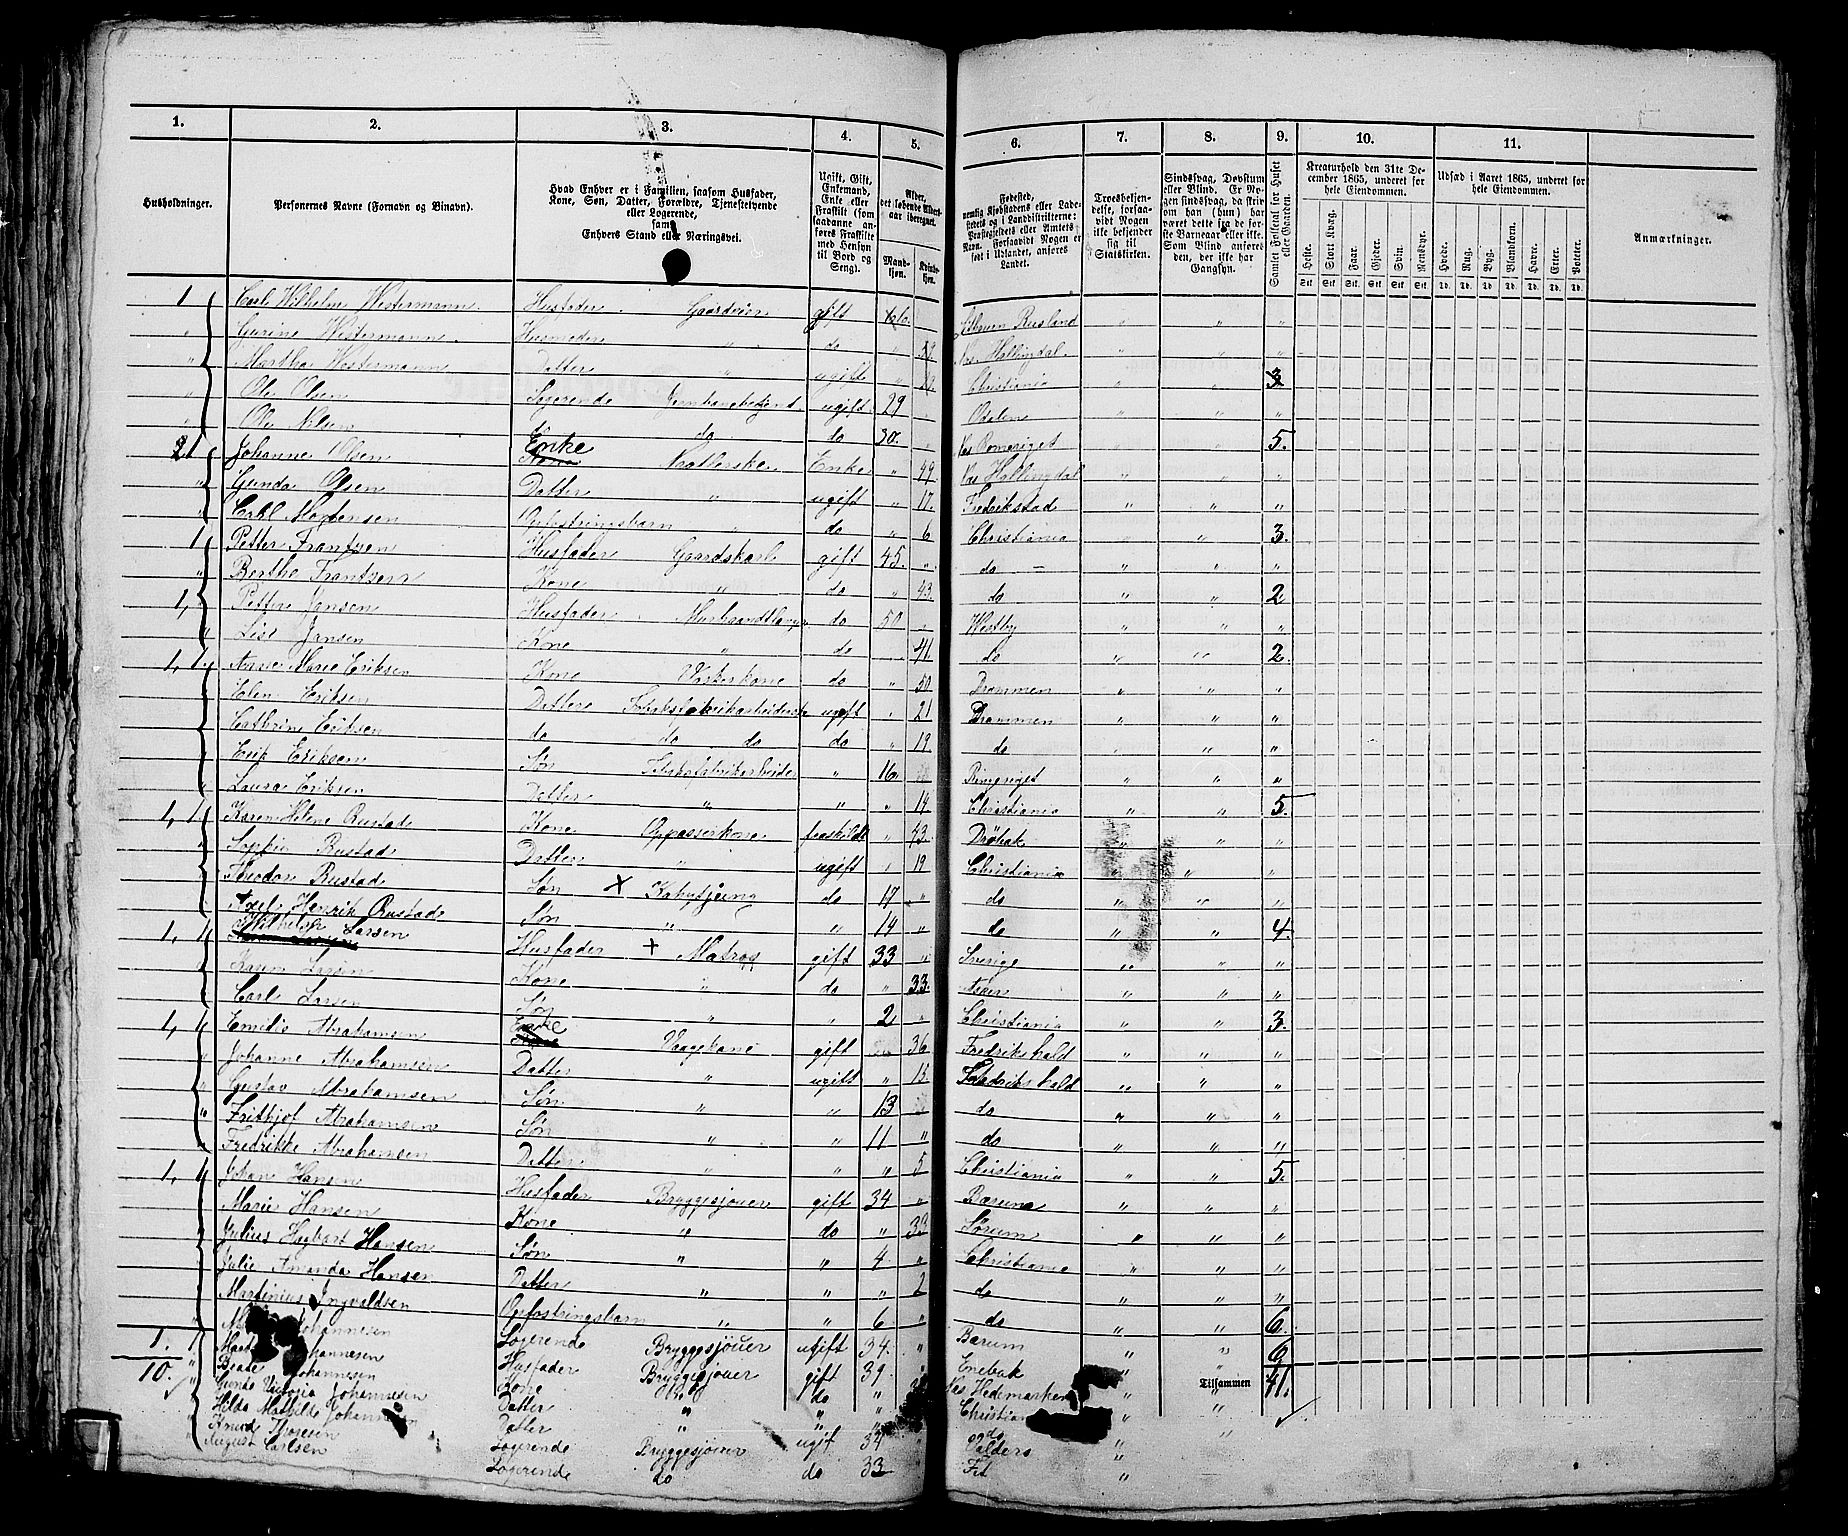 1. 2. 3. 4. 5. 6. 7. 8. 9. 10. 11.
Husholdninger.
Personernes Navne (Fornavn og Binavn).
Hvad Enhver er i Familien, saasom Husfader,
Kone, Søn, Datter, Forældre, Tjenestetyende
eller Logerende,
samt
Enhvers Stand eller Næringsvei.
Ugift, Gift,
Enkemand,
Enke eller
Fraskilt (som
saadanne an-
føres Fraskilte
med Hensyn
til Bord og
Seng).
Alder,
det løbende Alders-
aar iberegnet.
Mand-
kjøn.
Kvinde-
kjøn.
Fødested,
nemlig Kjøbstadens eller Lade-
stedets og i Landdistrikterne:
Præstegjeldets eller Amtets
Navn. Forsaavidt Nogen er
født i Udlandet, anføres
Landet.
Troesbekjen-
delse, forsaa-
vidt Nogen
ikke bekjender
sig til
Statskirken.
Sindssvag, Døvstum
eller Blind. Er No-
gen sindssvag, da skri-
ves om han (hun) har
været dette fra de før-
ste Barneaar eller ikke.
Som Blind anføres
den, der ikke har
Gangsyn.
Samlet Folketal for Huset
eller Gaarden.
Kreaturhold den 31te De-
cember 1865, underet for
hele Eiendommen.
Heste. Stort Kvæg. Faar. Gjeder. Svin. Rensdyr.
Stk. Stk. Stk. Stk. Stk. Stk.
Udsæd i Aaret 1865, underet for
hele Eiendommen.
Hvede. Rug. Byg. Blandkorn. Havre. Erter. Poteter.
Td. Td. Td. Td. Td. Td. Td.
Anmærkninger.
1 Carl Wilhelm Westermann Husfader Gaardeier gift Rusland
" Gurine Westermann Husmoder " do " Hallingdal
" Martha Westermann Datter " ugift " Christiania 3
" Ole Olsen Logerende ugift 29 " Odalen
" Ole Nilsen do do do 30. " Romeriget 5.
1 Johanne Olsen Enke Enke " 49 Hallingdal
" Gunda Olsen Datter " ugift " 17. Fredrikstad
" Carl Mortensen Opfostringsbarn " do " 6 Christiania 3.
1 Petter Frantzen Husfader Gaardskarl gift 45. " do
" Berthe Frantzen Kone " do " 43. do 2.
1, Petter Jansen Husfader do 50 " Westby
" Lise Jansen Kone " do 41. do 2.
1, 1. Anne Marie Eriksen Kone Vaskerkone do " 50 Drammen
Elen Eriksen Datter ugift " 21 Drammen
Cathrine Eriksen do do do do " 19 do
" Erik Eriksen Søn " 16 Ringriget
" Laura Eriksen Datter " " " 14 Christiania 5.
1, 1 Karen Helene Rustad Kone Oppasserkone fraskildt " 43. Drøbak
" Sophie Rustad Datter " ugift " 19 Christiania
Theodor Rustad Søn × do 17 " do
Axel Henrik Rustad Søn " " 14 " do 4.
1, 1 Wilhelm Larsen Husfader + Matros gift 33 " Sverige
Karen Larsen Kone " do " 33. Asker
Carl Larsen Søn " " 2 " Christiania 3.
1, 1 Emilie Abrahamsen Enke gift 36 Fredrikshald
" Johanne Abrahamsen Datter " ugift " 15. Fredrikshald
" Gustav Abrahamsen Søn " " 13 do
" Frithjof Abrahamsen Søn " " 11 " do
" Fredrikke Abrahamsen Datter " " " 5 Christiania 5.
1, 1 Johan Hansen Husfader Bryggesjouer gift 34 " Bærum
Marie Hansen Kone " do " 33 Sørum
" Julius Hagbart Hansen Søn " " 4 " Christiania
" Julie Amanda Hansen Datter " " " 2 do
" Martinius Ingvaldsen Opfostringsbarn " " 6 " do 6.
" Johannesen Logerende Bryggesjouer ugift 34. " Bærum
1. 1 Johannesen Husfader Bryggesjouer gift 39. " Enebak 6
10. " Beate Johannesen Kone do do " Hedemarken Tilsammen 41.
" Gunda Victoria Johannesen Datter " " " Christian
" Hilda Mathilde Datter " " " do
" Knud Thoresen Logerende Bryggesjouer ugift 34 Valders
" August Carlsen Logerende do do 33 Fet